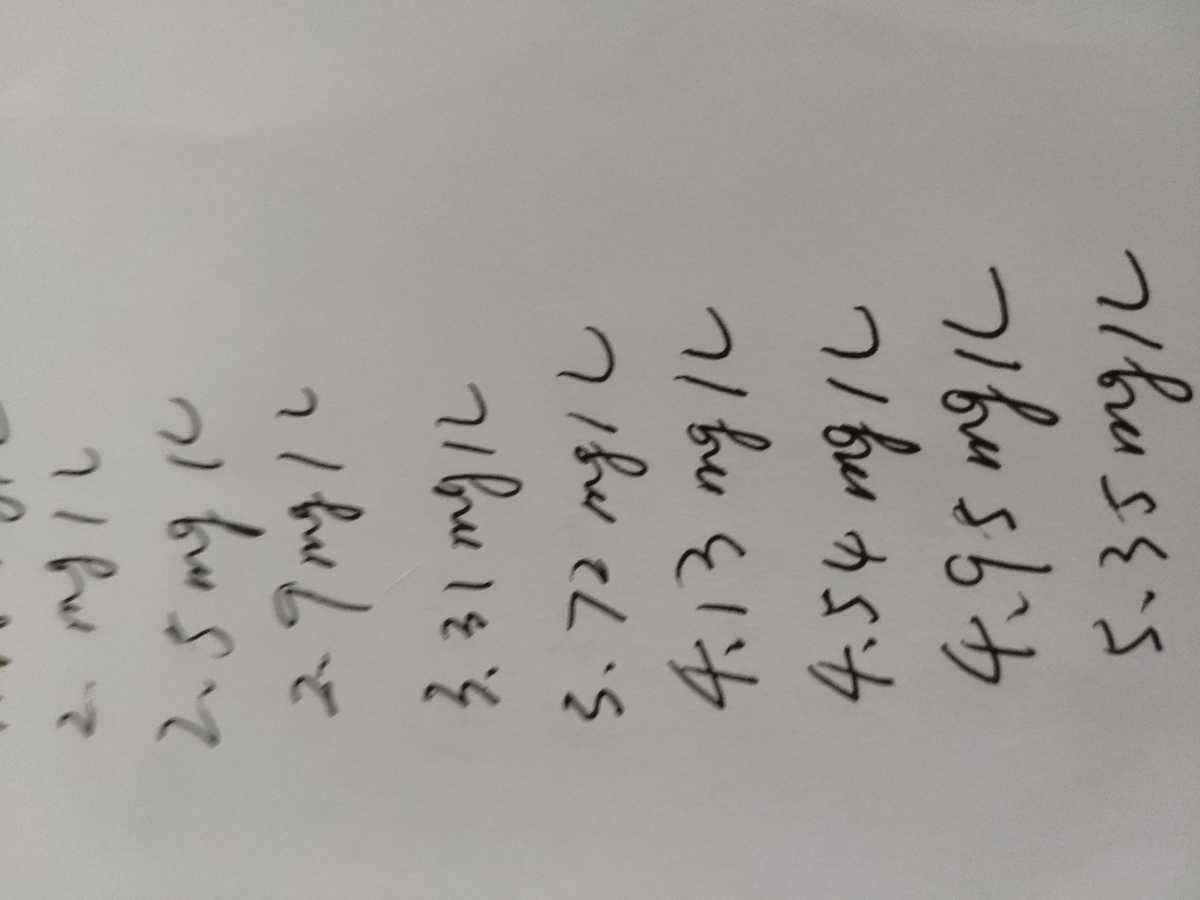 2. mg/L
2.5 mg/L
2.9 mg/L
3.31 mg/L
3.72 mg/L
4.13 mg/L
4.54 mg/L
4.95 mg/L
5.35 mg/L